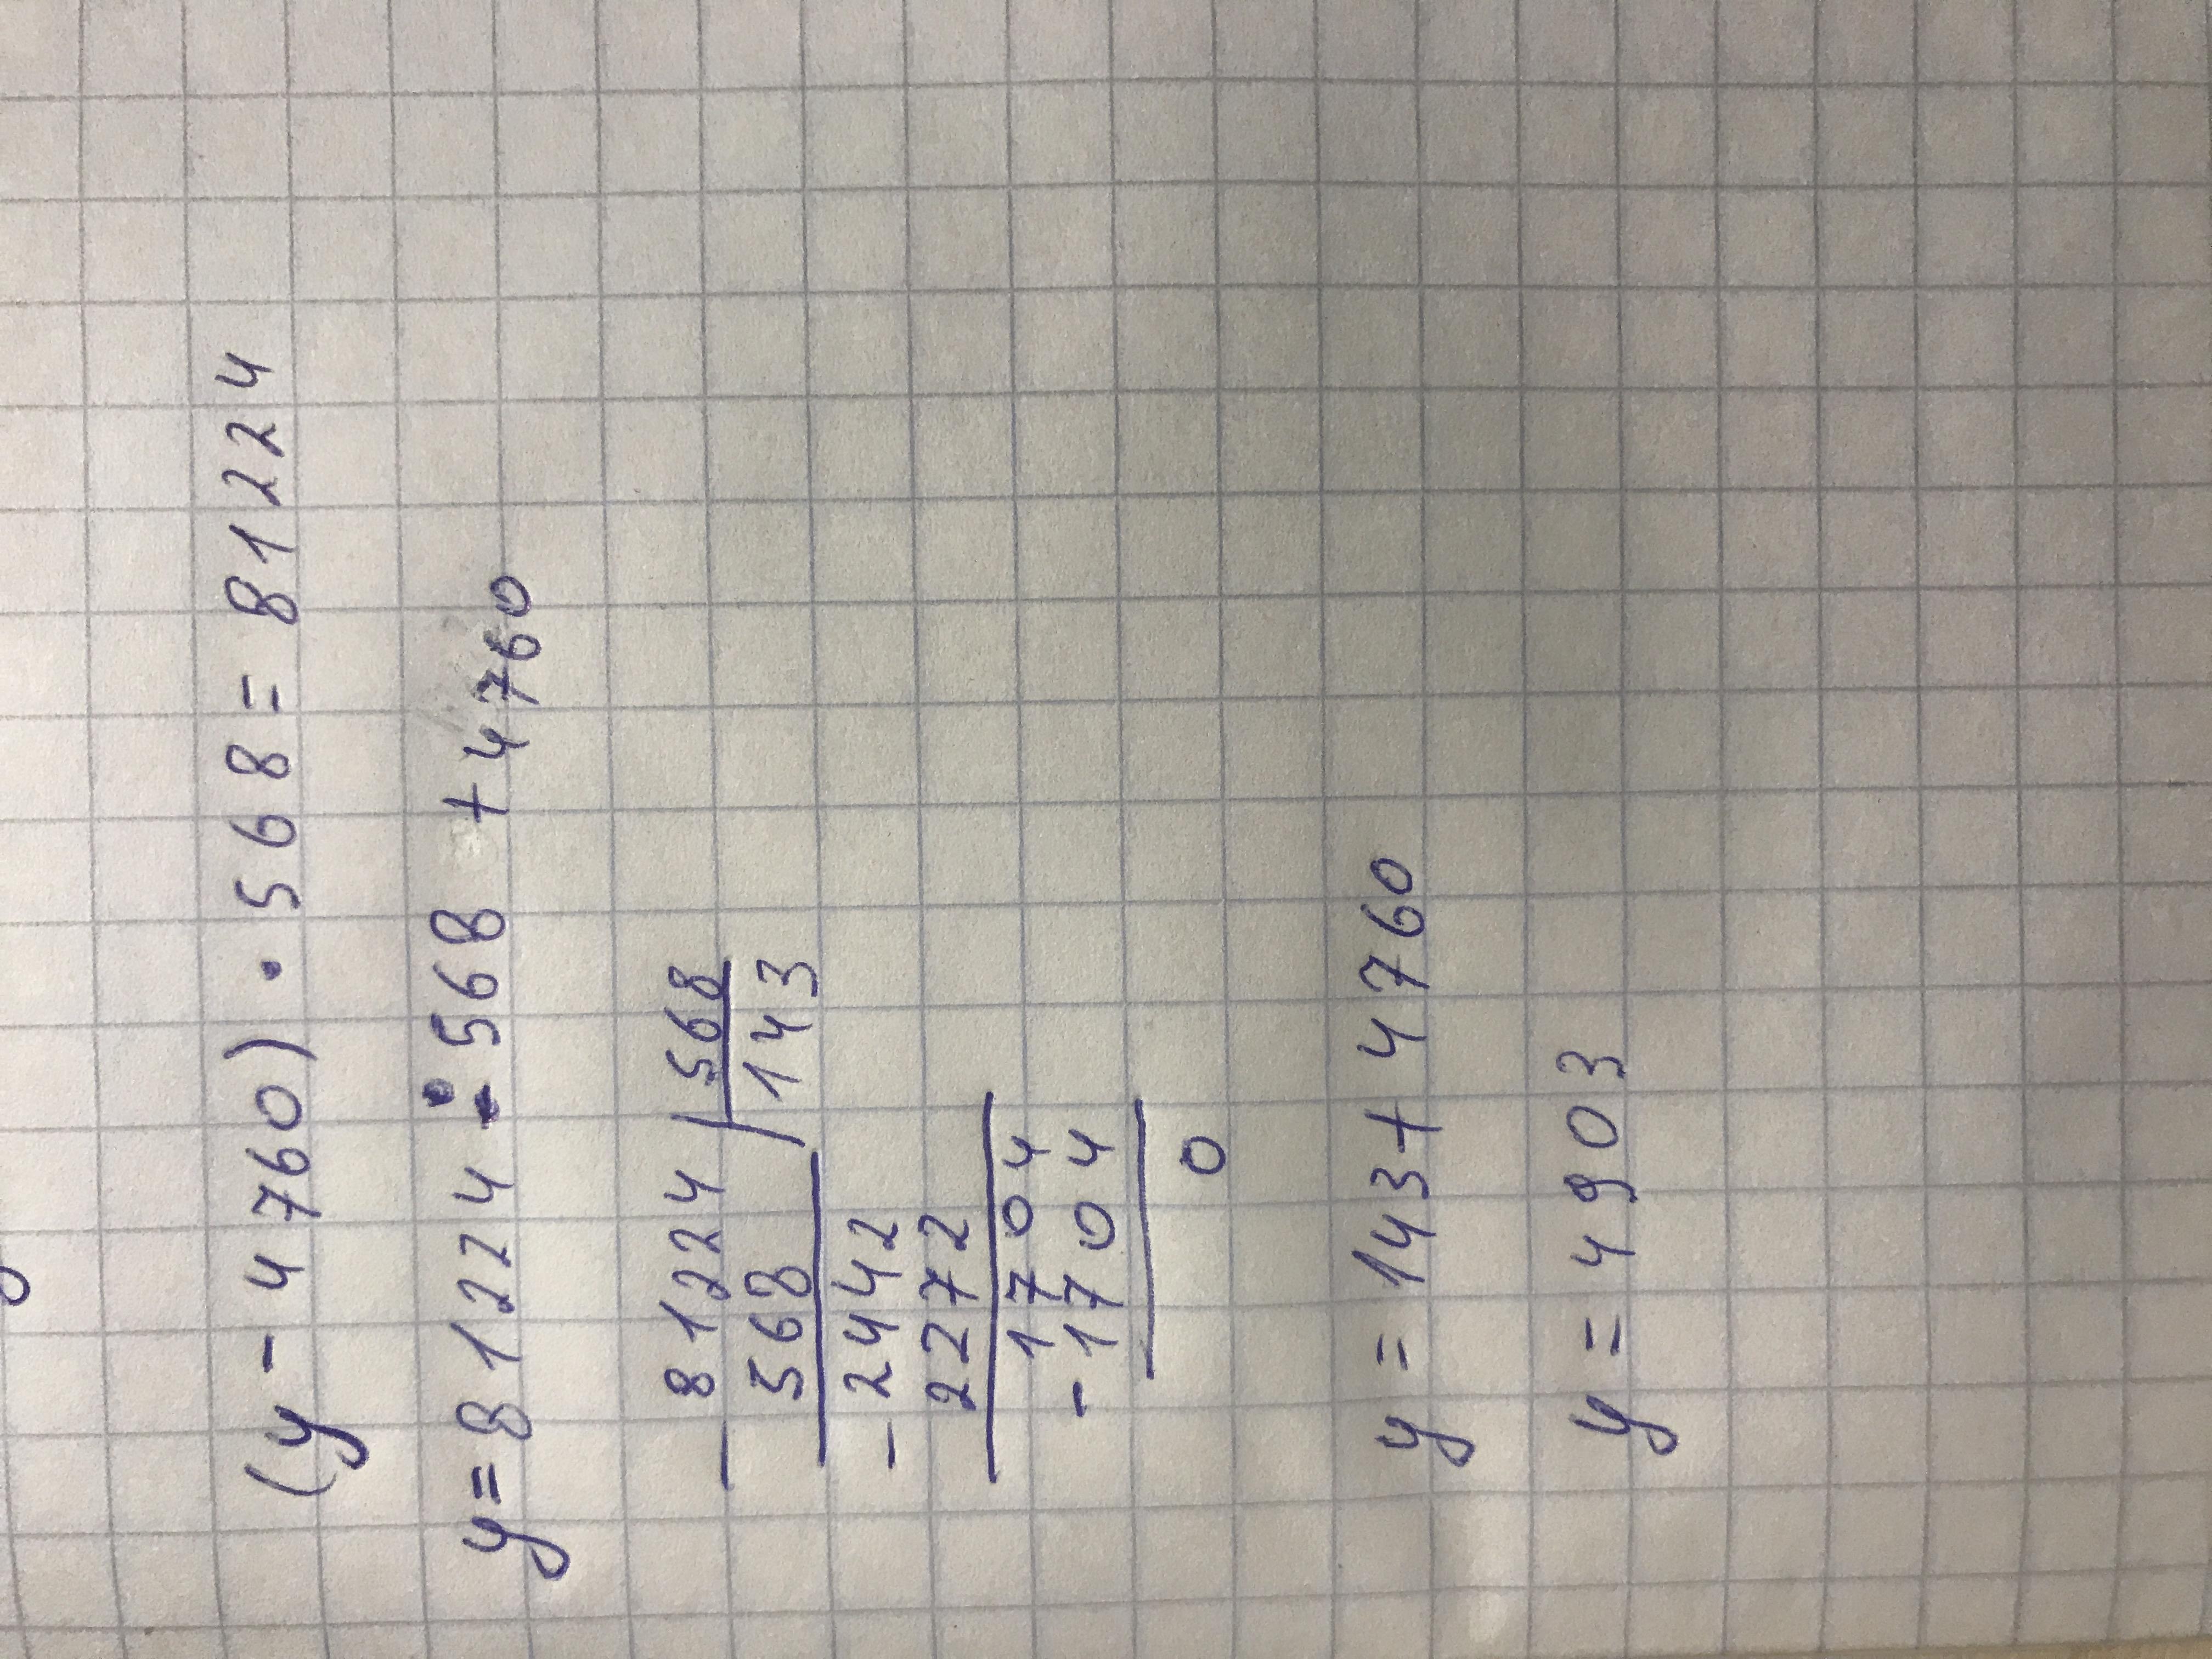 (y - 4760) · 568 = 81224
y = 81224 : 568 + 4760
- 81224 | 568
568 | 143
- 2442
2272
1704
- 1704
0
y = 143 + 4760
y = 4903